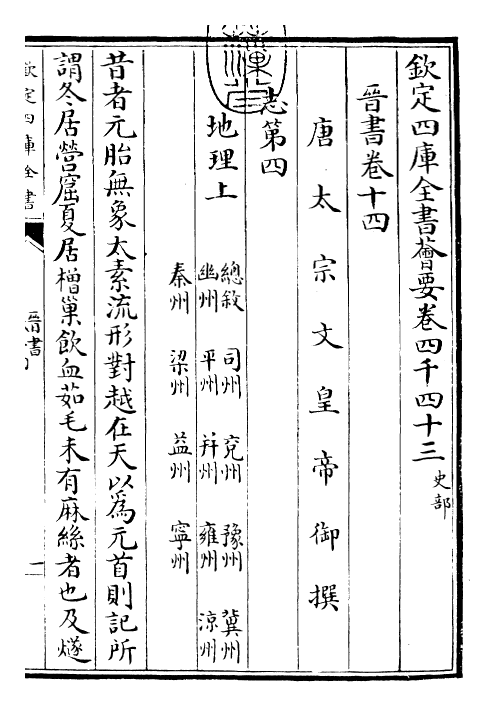 欽定四庫全書薈要卷四千四十三 史部
晉書卷十四
唐太宗文皇帝御撰
志第四
地理上
總敘 司州 兗州 豫州 冀州
幽州 平州 幷州 雍州 涼州
秦州 梁州 益州 寧州
昔者元胎無象太素流形對越在天以爲元首則記所
謂冬居營窟夏居橧巢飲血茹毛未有麻絲者也及燧
欽定四庫全書
晉書
一